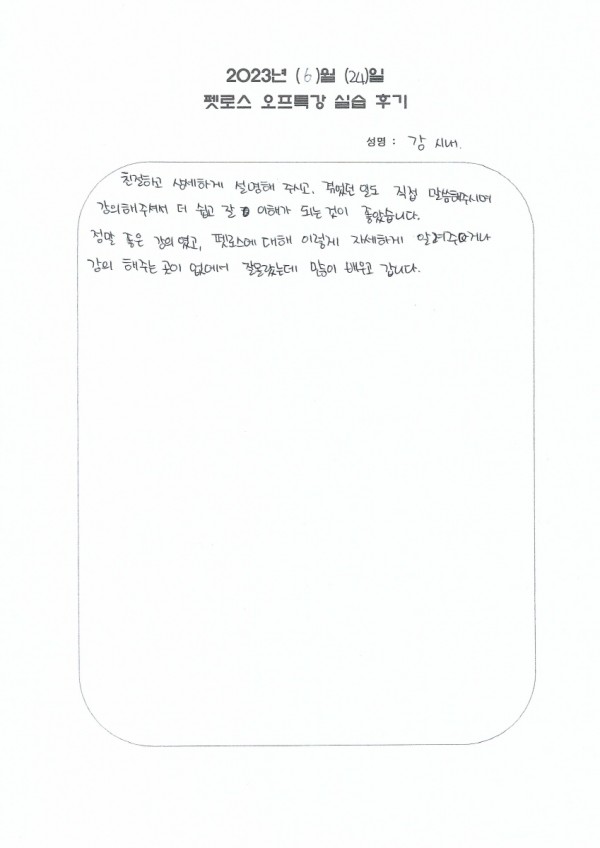 2023년 (6)월 (24)일
펫로스 오프특강 실습 후기
성명 : 강 시내
친절하고 상세하게 설명해 주시고, 겪었던 일도 직접 말씀해주시며
강의해주셔서 더 쉽고 잘 이해가 되는 것이 좋았습니다.
정말 좋은 강의 였고, 펫로스에 대해 이렇게 자세하게 알려주거나
강의 해주는 곳이 없어서 잘몰랐는데 많이 배우고 갑니다.